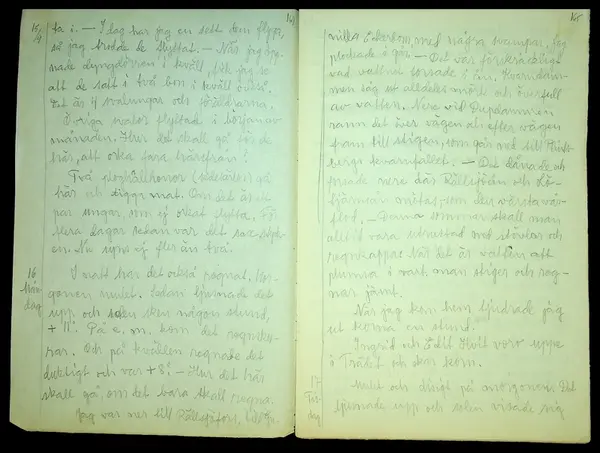 164
15/9
ta i. — I dag har jag en sett dem flyga,
så jag trodde de flyttat. — När jag öpp-
nade dyngdörren i kväll, fick jag se
att de satt i två bon i kväll också.
Det är 4 svalungar och föräldrarna.
Övriga svalor flyttade i början av
månaden. Hur det skall gå för de
här, att orka fara härifrån?
Två (sädesärlor) gå
här och digga mat. Om det är ett
par ungar, som ej orkat flytta. För
flera dagar sedan var det sex styck-
en. Nu syns ej fler än två.
16
Mån-
dag
I natt har det också regnat. Mor-
gonen mulet. Sedan ljusnade det
upp och solen sken någon stund,
+ 11°. På e. m. kom det regnsku-
rar. Och på kvällen regnade det
duktigt och var + 8°. — Hur det här
skall gå, om det bara skall regna.
Jag var ner till Rällsjöfors,
165
milla Eckerbom, med några svampar, jag
plockade i går. — Det var förskräckligt
vad vattnet forsade i ån. Kvarndam-
men såg ut alldeles mörk och överfull
av vatten. Nere vid
rann det över vägen och efter vägen
fram till stigen, som går ned till
bergs kvarnfallet. — Det dånade och
forsade nere där Rällsjöån och
tjärnen mötas, som den värsta vår-
flod. — Denna sommar skall man
alltid vara utrustad med stövlar och
regnkappa. När det är vatten att
plumsa i vart man stiger och reg-
nar jämt.
När jag kom hem tjudrade jag
ut korna en stund.
Ingrid och Edit Hvitt voro uppe
i Trädet och skar korn.
17
Tis-
dag
Mulet och dimgt på morgonen. Det
ljusnade upp och solen visade sig